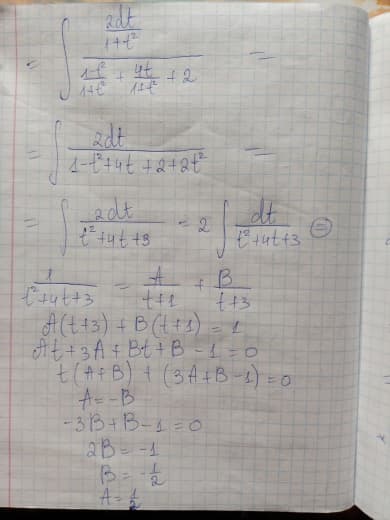 = ∫ (2dt/(1+t²)) / ((1-t²)/(1+t²) + 4t/(1+t²) + 2) =
= ∫ 2dt/(1-t²+4t+2+2t²) =
= ∫ 2dt/(t²+4t+3) = 2 ∫ dt/(t²+4t+3) ⊜
1/(t²+4t+3) = A/(t+1) + B/(t+3)
A(t+3) + B(t+1) = 1
At+3A+Bt+B-1=0
t(A+B) + (3A+B-1)=0
A=-B
-3B+B-1=0
2B=-1
B=-1/2
A=1/2